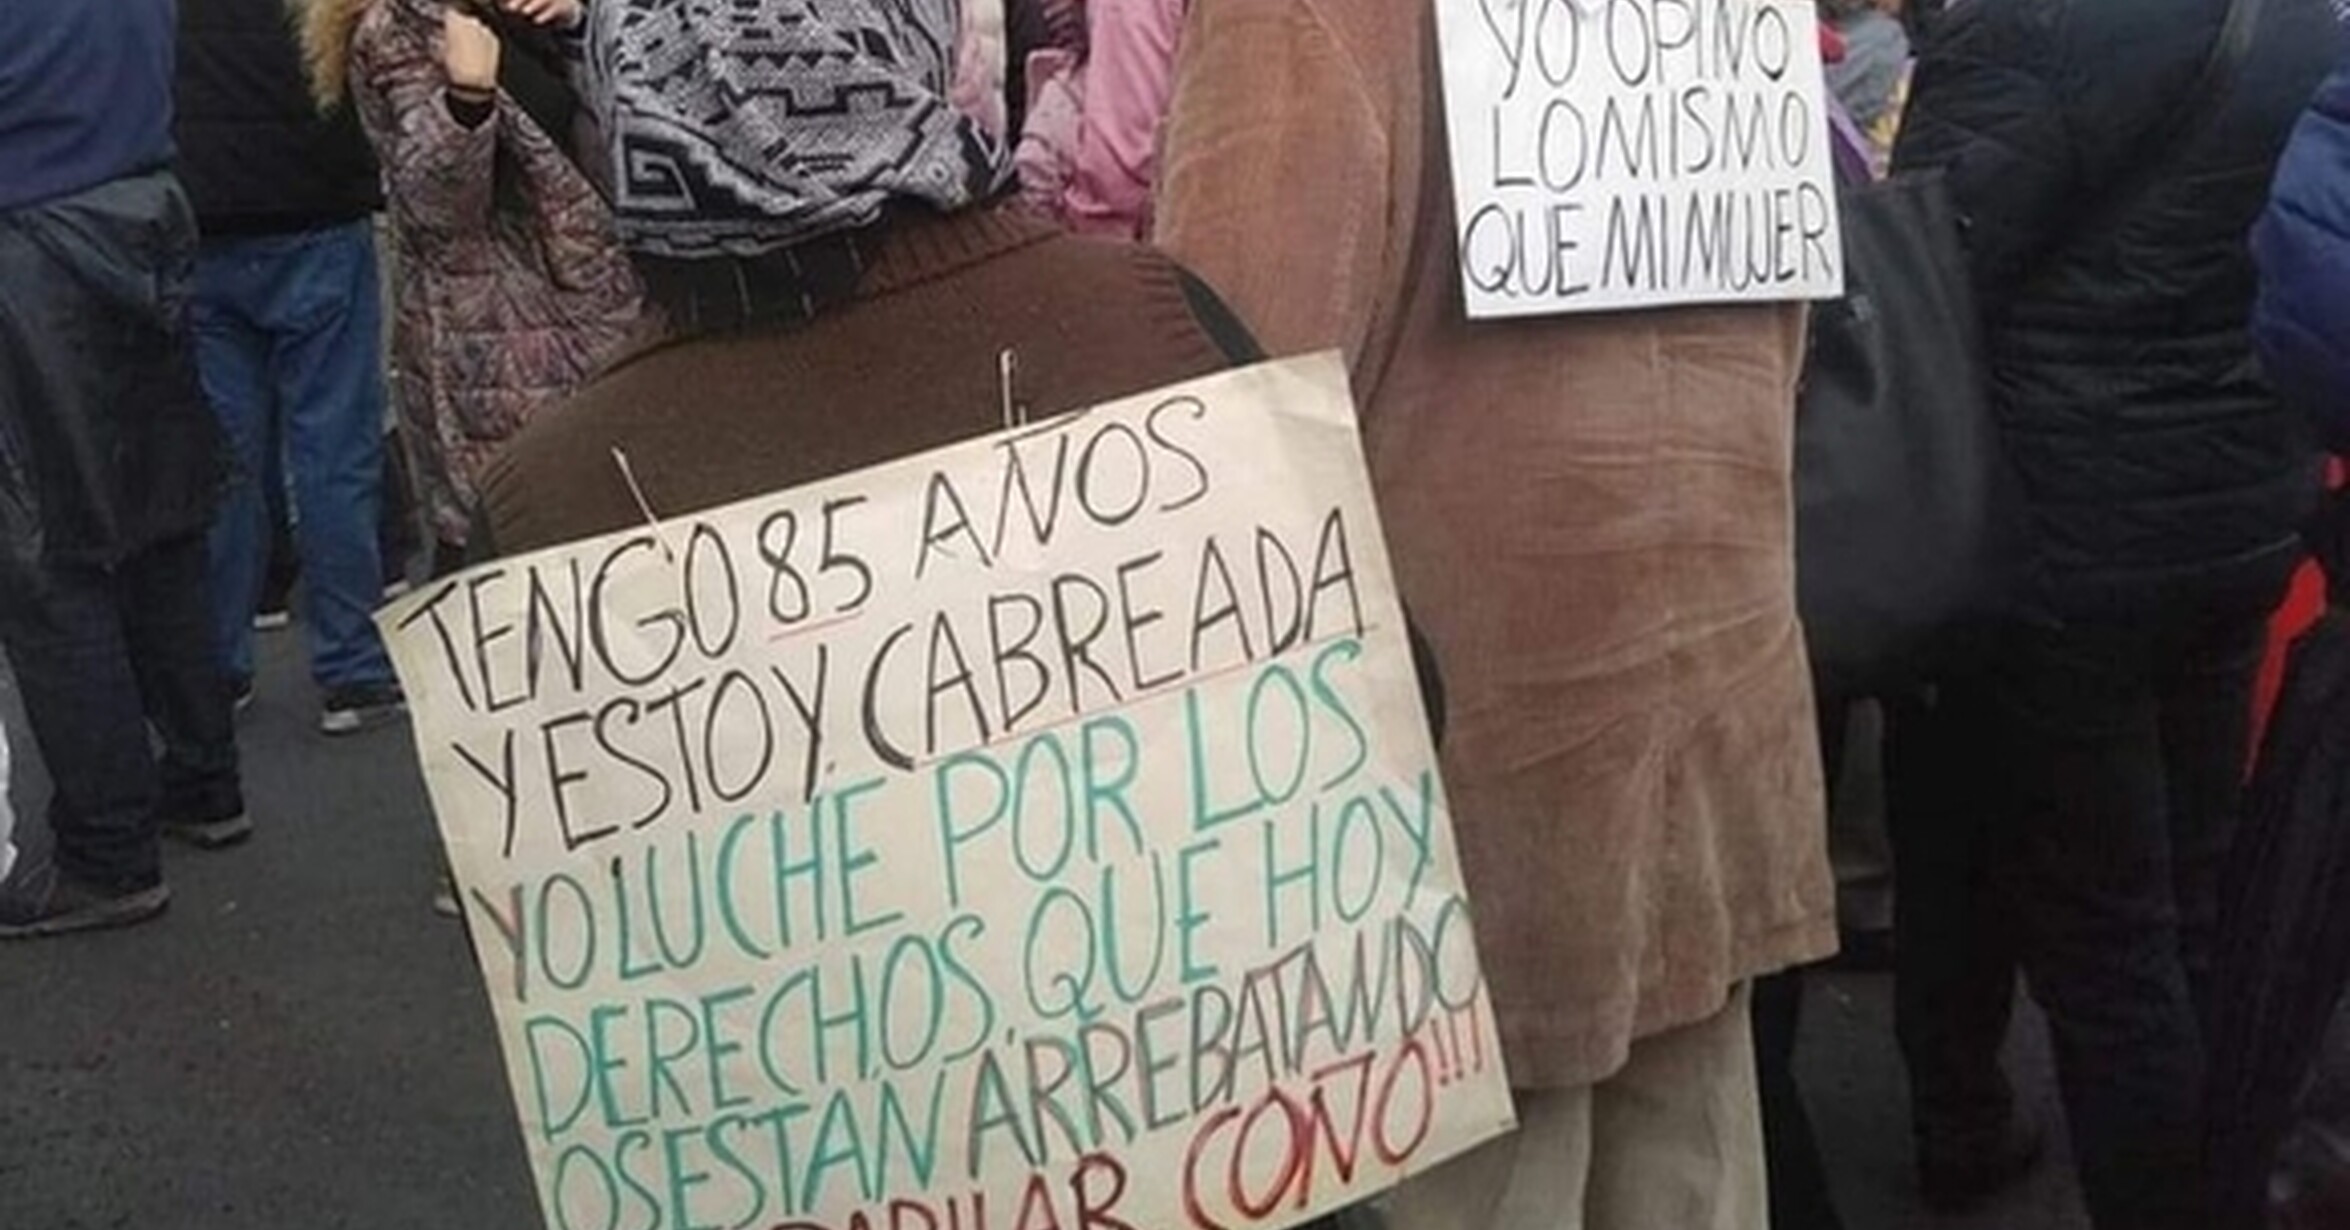 YO OPINO
LO MISMO
QUE MI MUJER
TENGO 85 AÑOS
Y ESTOY CABREADA
YO LUCHE POR LOS
DERECHOS QUE HOY
OS ESTAN ARREBATANDO
COÑO!!!